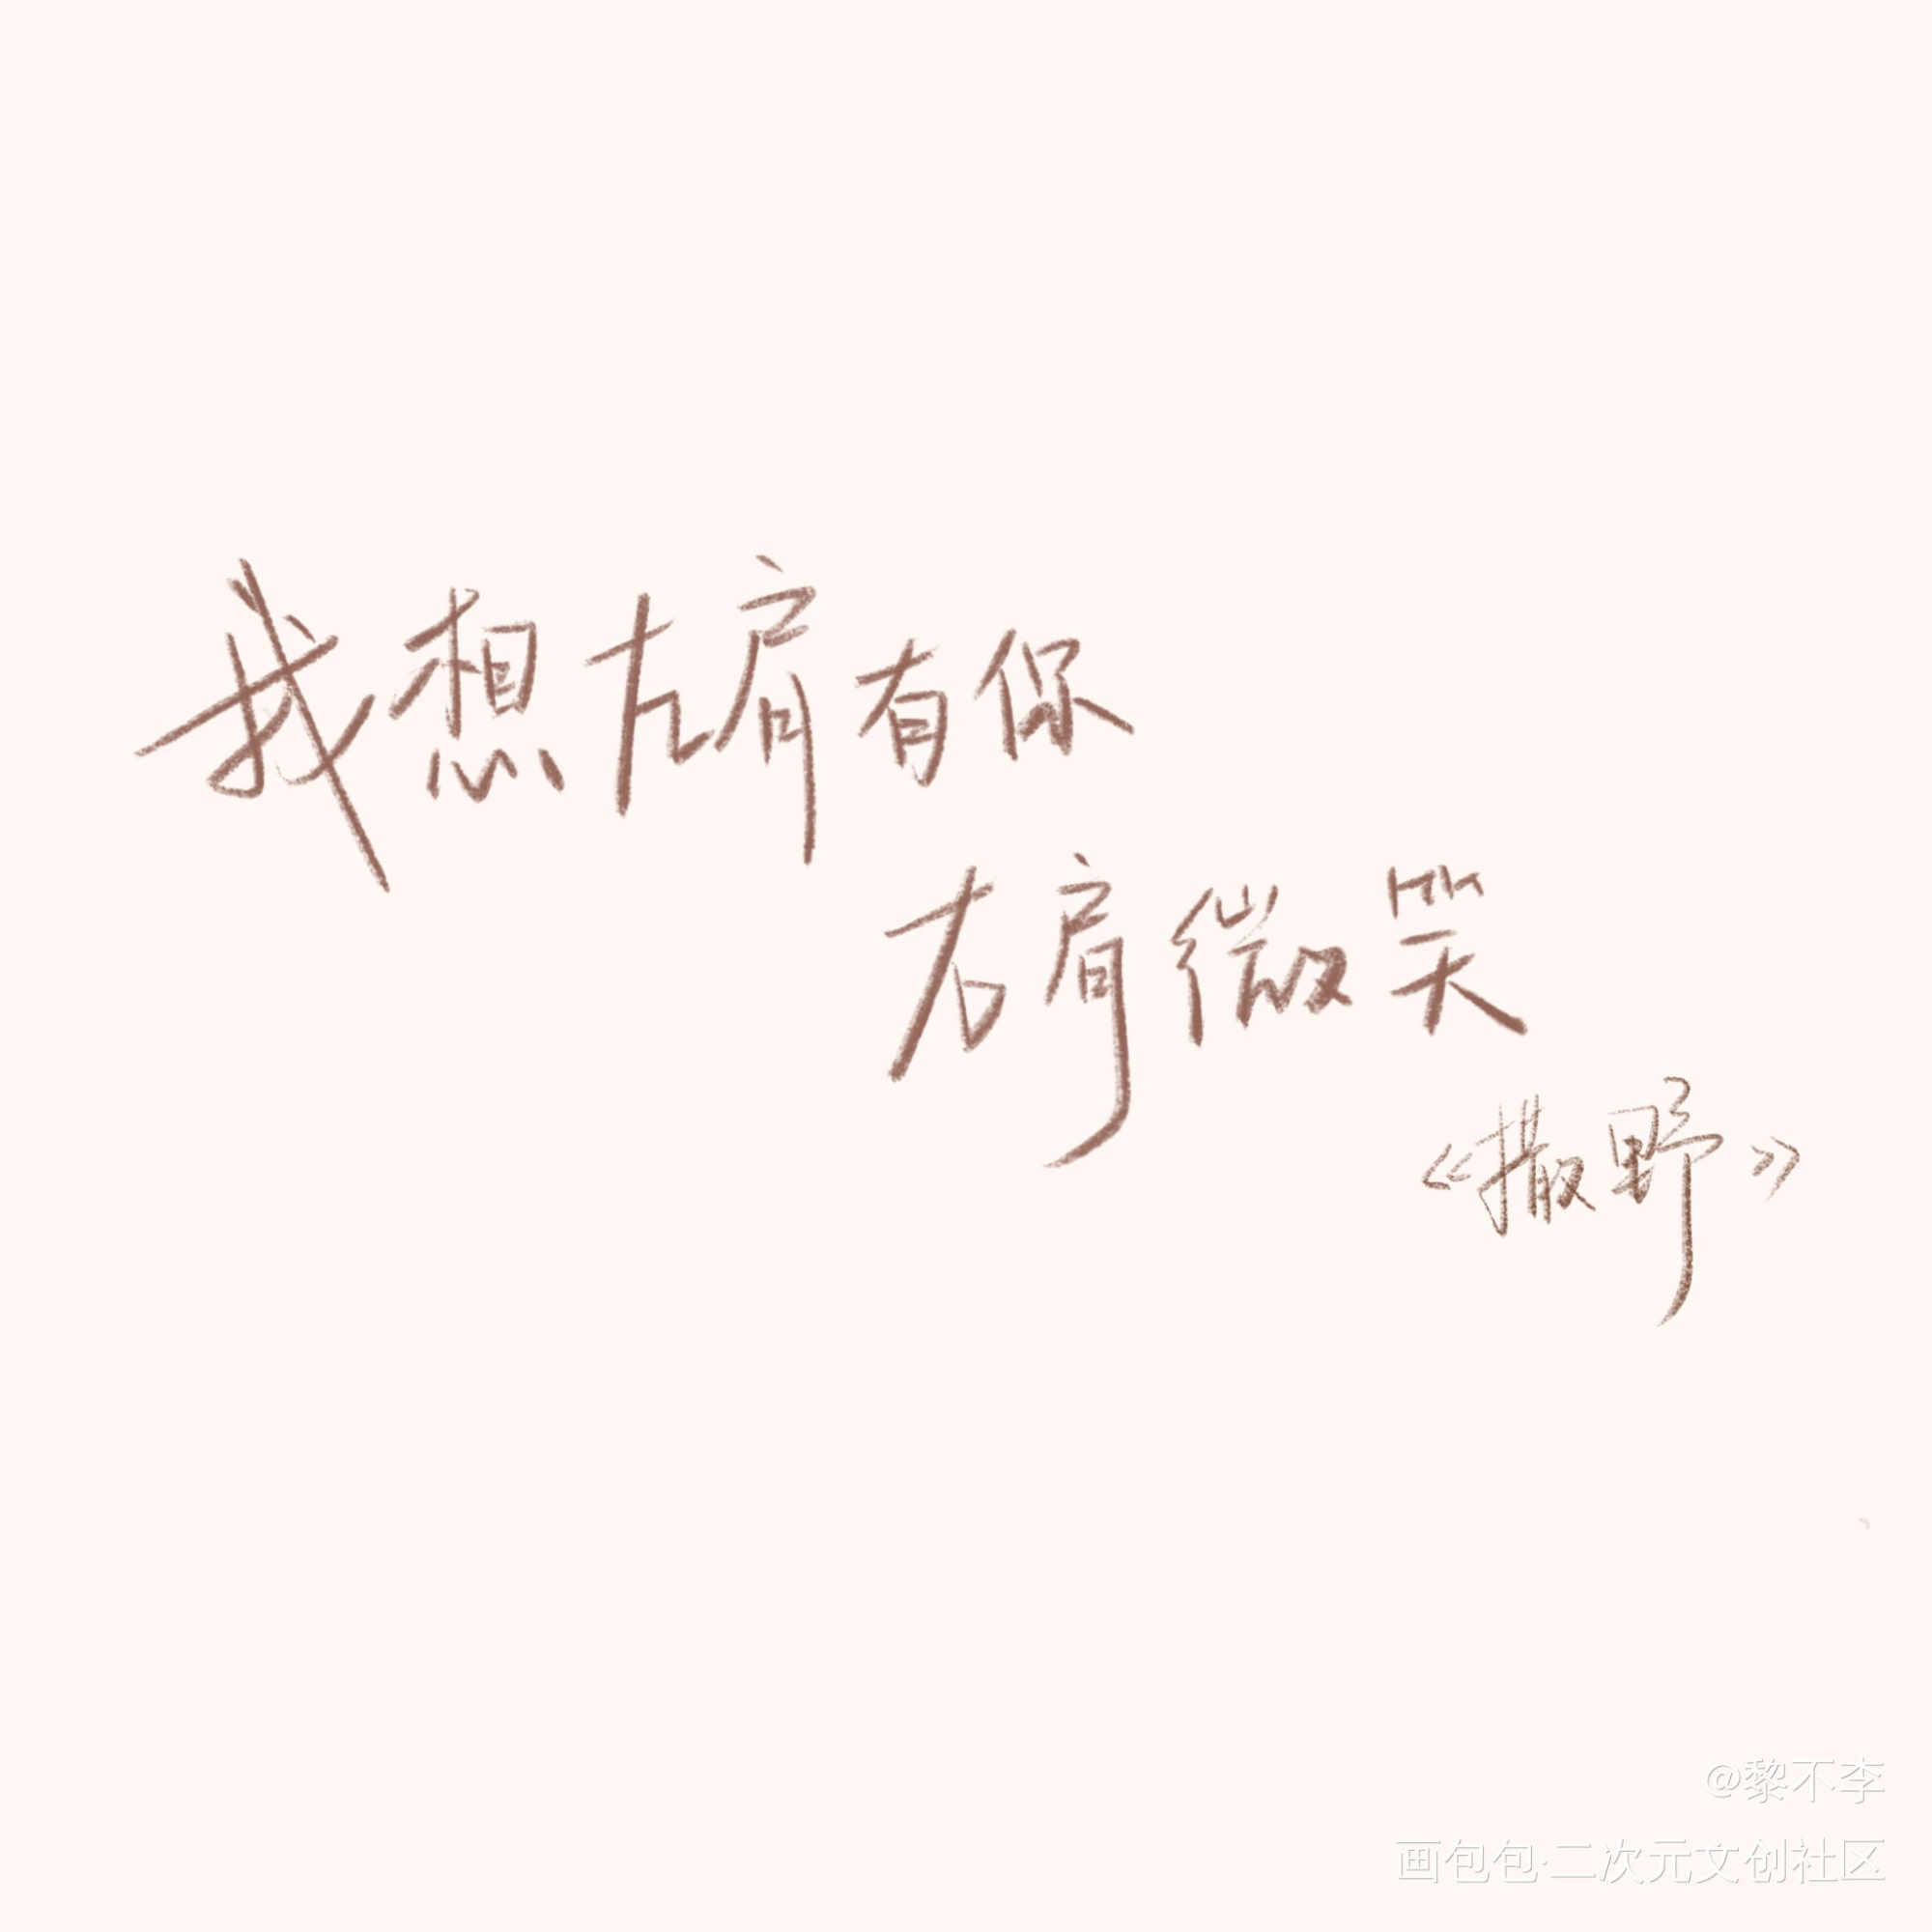 我想左肩有你
右肩微笑
《撒野》
@黎不李
画包包·二次元文创社区